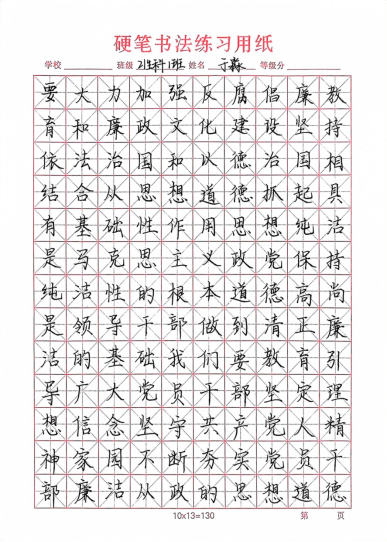 硬笔书法练习用纸
学校 班级 21生科1班 姓名 于淼 等级分
要大力加强反腐倡廉教
育和廉政文化建设坚持
依法治国和以德治国相
结合从思想道德抓起具
有基础性作用思想纯洁
是马克思主义政党保持
纯洁性的根本道德高尚
是领导干部做到清正廉
洁的基础我们要教育引
导广大党员干部坚定理
想信念坚守共产党人精
神家园不断夯实党员干
部廉洁从政的思想道德
10x13=130 第 页